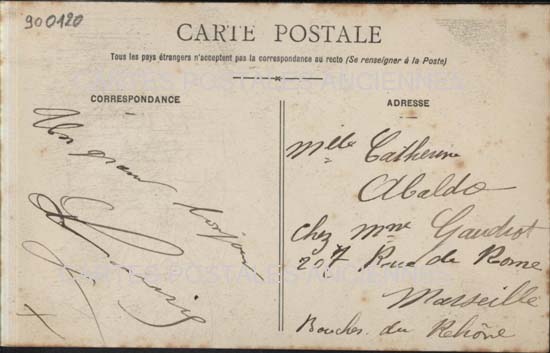 900120
CARTE POSTALE
Tous les pays étrangers n'acceptent pas la correspondance au recto (Se renseigner à la Poste)
CARTES POSTALES ANCIENNES
CORRESPONDANCE
ADRESSE
Un grand bonjour
Mlle Catherine
Abaldo
Chez Mme Gaudrot
207 Rue de Rome
CARTES POSTALES ANCIENNES
Marseille
Bouches du Rhône